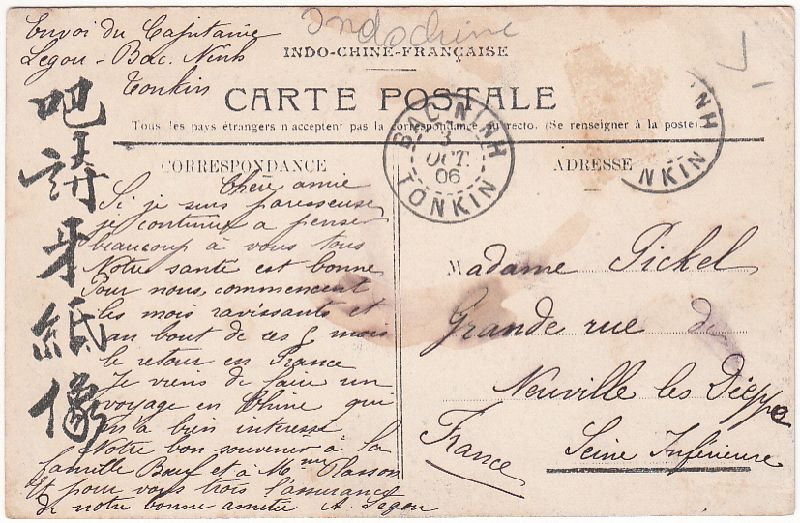 Indochine
Envoi du Capitaine
Legou - Bac. Ninh
Tonkin
INDO-CHINE-FRANÇAISE
CARTE POSTALE
Tous les pays étrangers n'acceptent pas la correspondance au recto. (Se renseigner à la poste)
BAC-NINH
3
OCT.
06
TONKIN
NH
NKIN
CORRESPONDANCE
ADRESSE
吧
講
牙
紙
像
Chère amie
Si je suis paresseuse
je continue a penser
beaucoup à vous tous
Notre santé est bonne
Pour nous, commencent
les mois ravissants et
au bout de ces 8 mois
le retour en France
Je viens de faire un
voyage en Chine qui
m'a bien interessé
Notre bon souvenir à la
famille Bauf et à Mme Plasson
Et pour vous trois l'assurance
de notre bonne amitié A Legou
Madame Pickel
Grande rue de
Neuville les Dieppe
Seine Inférieure
France